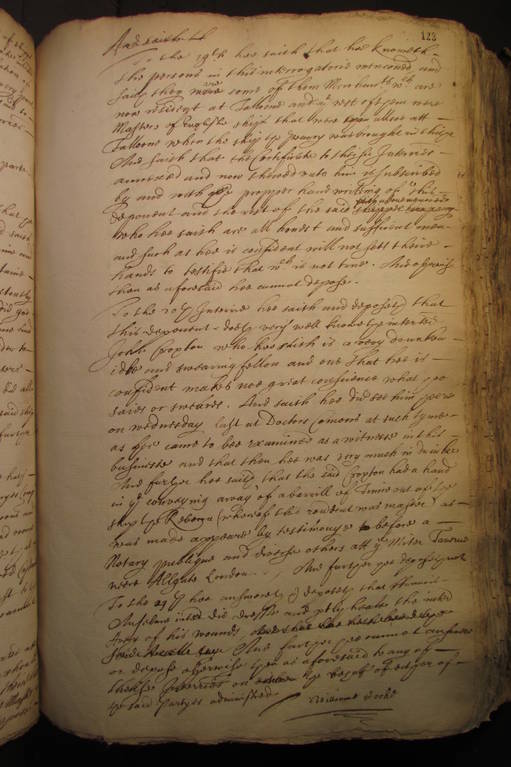 128
To the 19th hee saith that hee knoweth
the persons in this interrogatorie menconed and
saith they were some of them Merchants wch are
now resident at Talloone and ye rest of them were
Masters of English shipps that were then att
Talloone when the shipp ye Peeary was brought in thither
And saith that the Certificate to these Interries
annexed and now shewed unto him is subscribed
by and with ye propper hand writing of this
deponent and the rest of the said
who hee saith are all honest and sufficient men
and such as hee is confident will not sett theire
hands to testifie that wch is not true. And otherwise
then as aforesaid hee cannot depose.
To the 20th Interrie hee saith and deposeth that
this deponent doth very well knowe ye interr
John Cropton who hee saith is a very drunken
idle and swearing fellow and one that hee is
confident makes noe great conscience what he
saies or sweares. And saith hee did see him here
on wednesday last at Doctors Comons at such tyme
as hee came to bee examined as a witnesse in this
businesse and that then hee was very much in drinke
And further hee saith that the said Cropton had a hand
in ye conveying away of a barrill of out of the
shipp ye (whereof this was master) as
was made appeare by testimonye before a
Notary publique and diverse others att ye Miter Taverne
neere Allgate London. And further hee deposeth not
To the 21th hee answereth & deposeth that
did dresse and help heale the
of his wounds,
And further hee cannot answere
or depose otherwise then as aforesaid to any of
these Interries on the behalf of either of
ye said partyes administred.